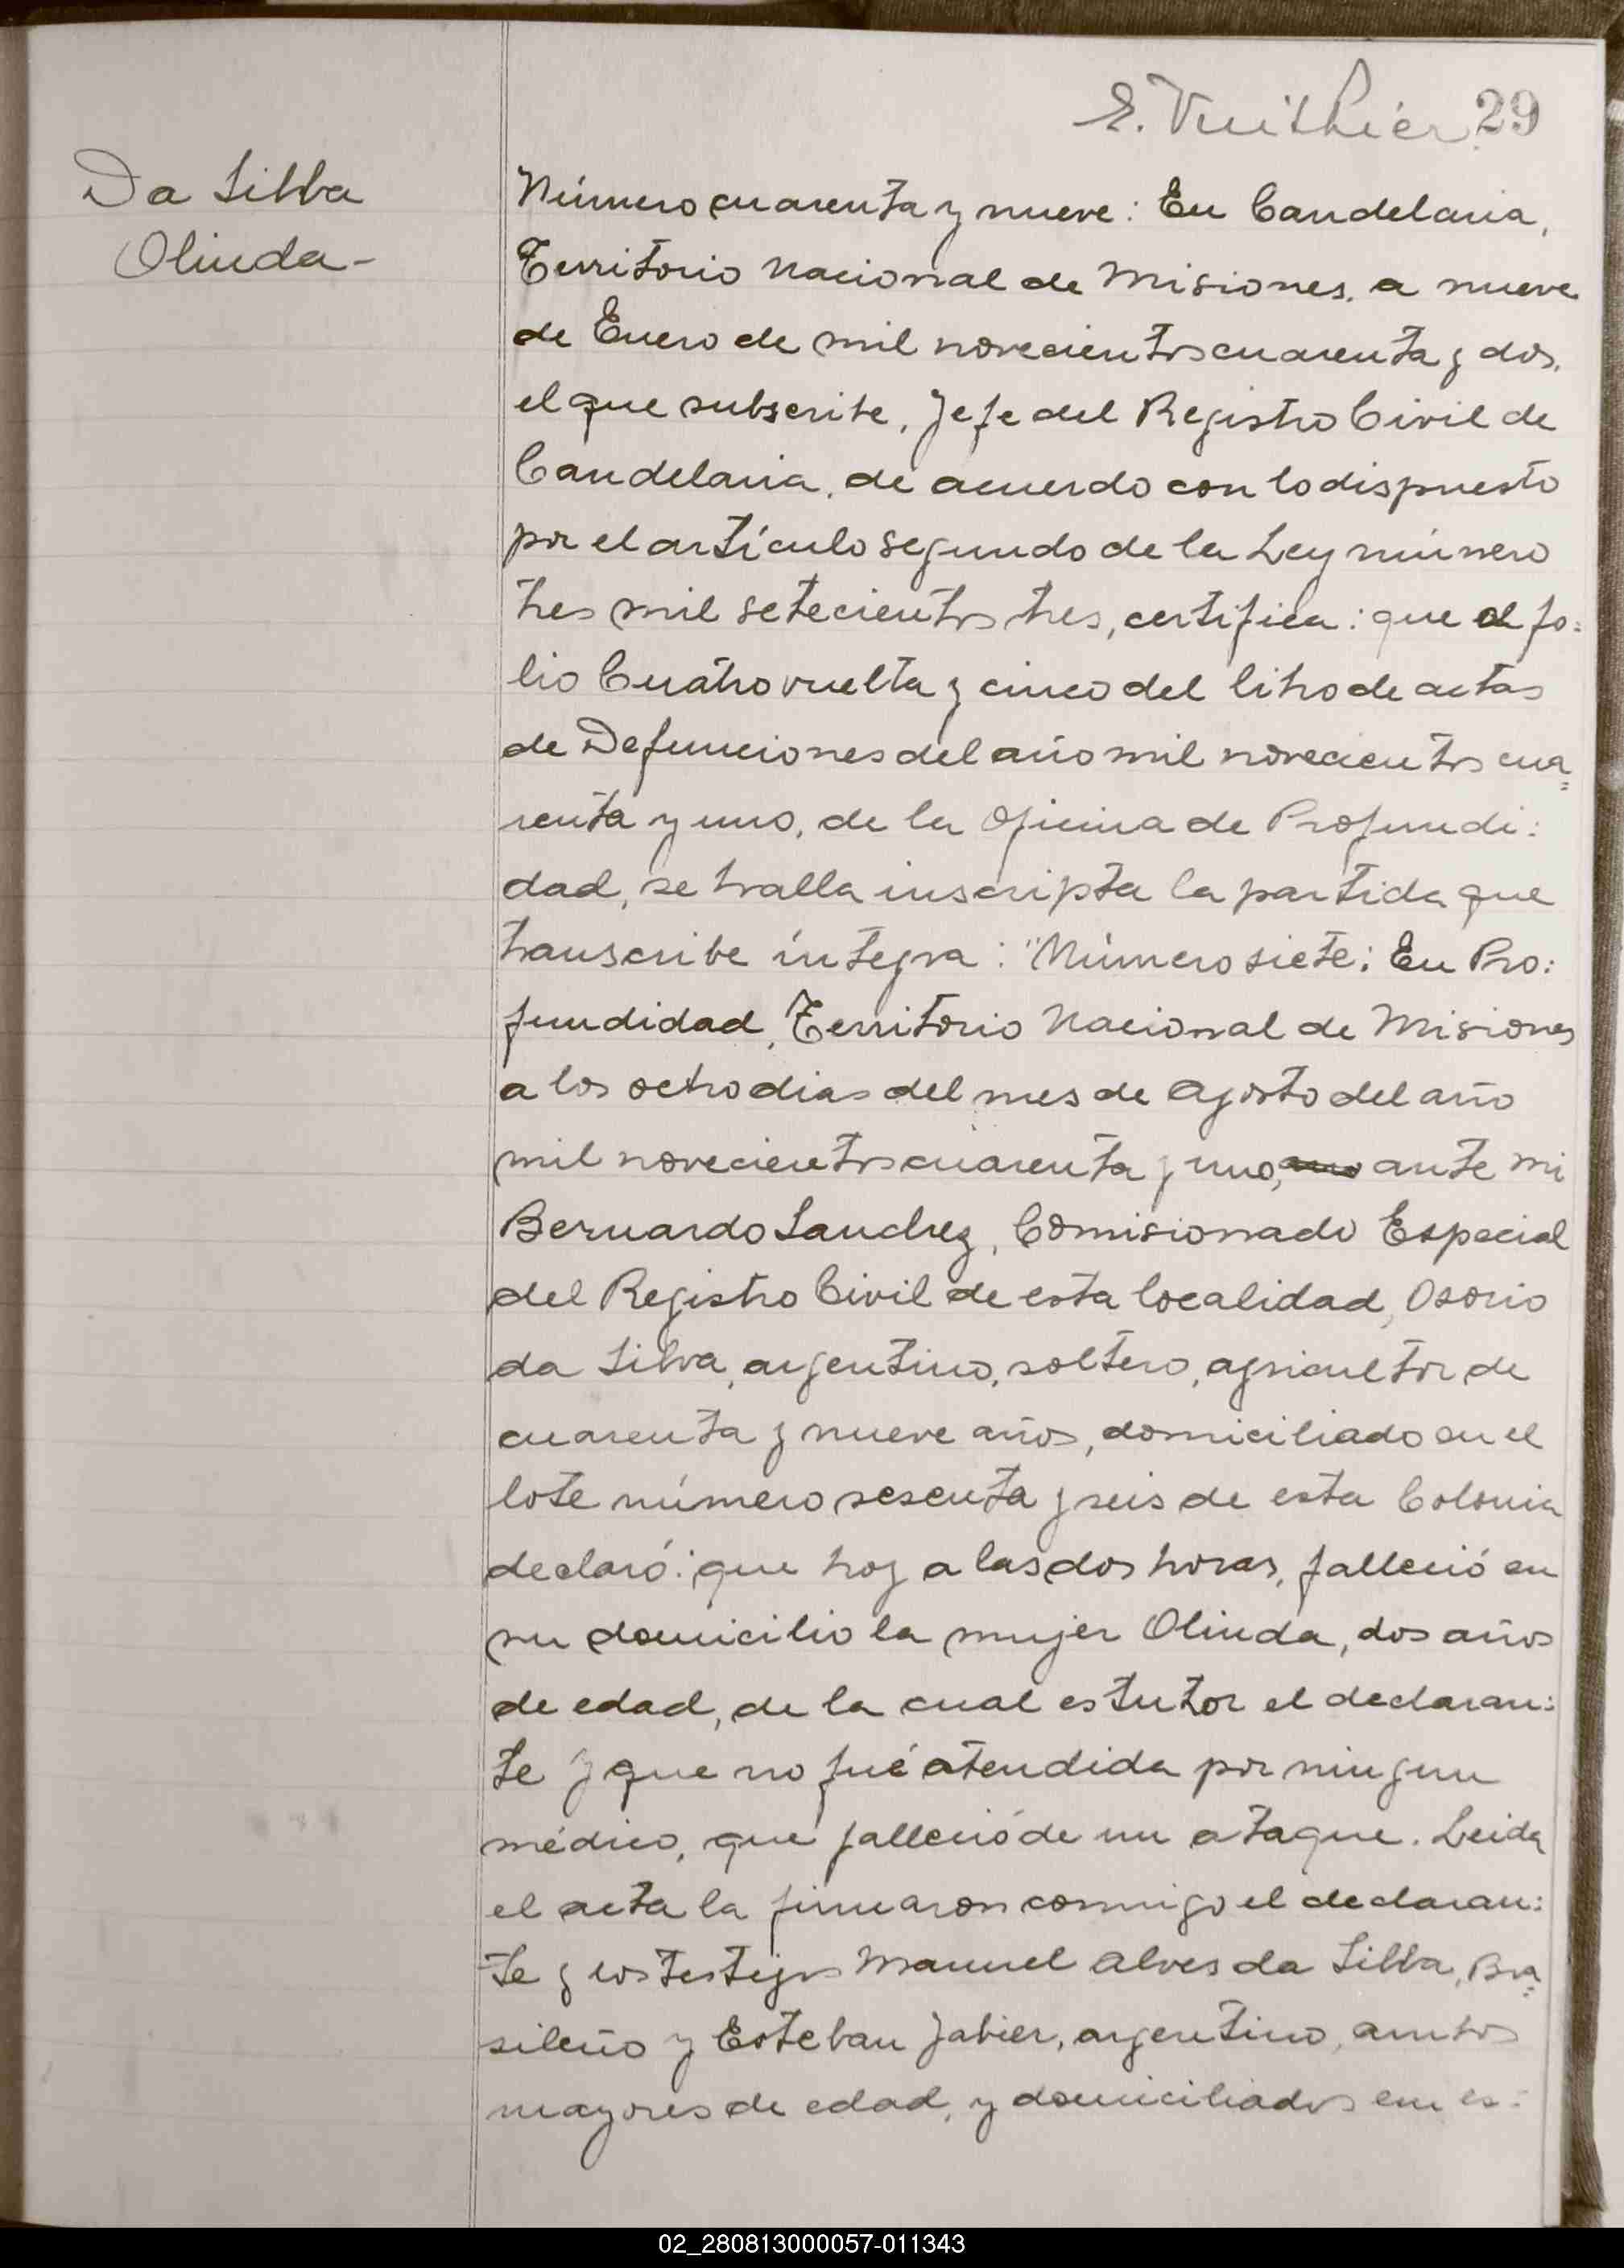 E. Vuithier 29
Da Silva
Olinda-
Número cuarenta y nueve: En Candelaria,
Territorio Nacional de Misiones, a nueve
de Enero de mil novecientos cuarenta y dos,
el que subscribe, Jefe del Registro Civil de
Candelaria, de acuerdo con lo dispuesto
por el artículo segundo de la Ley número
tres mil setecientos tres, certifica: que al fo=
lio Cuatro vuelta y cinco del libro de actas
de Defunciones del año mil novecientos cua=
renta y uno, de la Oficina de Profundi=
dad, se halla inscripta la partida que
transcribe íntegra: "Número siete: En Pro=
fundidad, Territorio Nacional de Misiones
a los ocho dias del mes de Agosto del año
mil novecientos cuarenta y uno, ante mi
Bernardo Sanchez, Comisionado Especial
del Registro Civil de esta localidad, Osorio
da Silva, argentino, soltero, agricultor de
cuarenta y nueve años, domiciliado en el
lote número sesenta y seis de esta Colonia
declaró: que hoy a las dos horas, falleció en
su domicilio la mujer Olinda, dos años
de edad, de la cual es tutor el declaran=
te y que no fué atendida por ningun
médico, que falleció de un ataque. Leida
el acta la firmaron conmigo el declaran=
te y los testigos Manuel Alves da Silva, Bra=
sileño y Esteban Jabier, argentino, ambos
mayores de edad, y domiciliados em es=
02_280813000057-011343